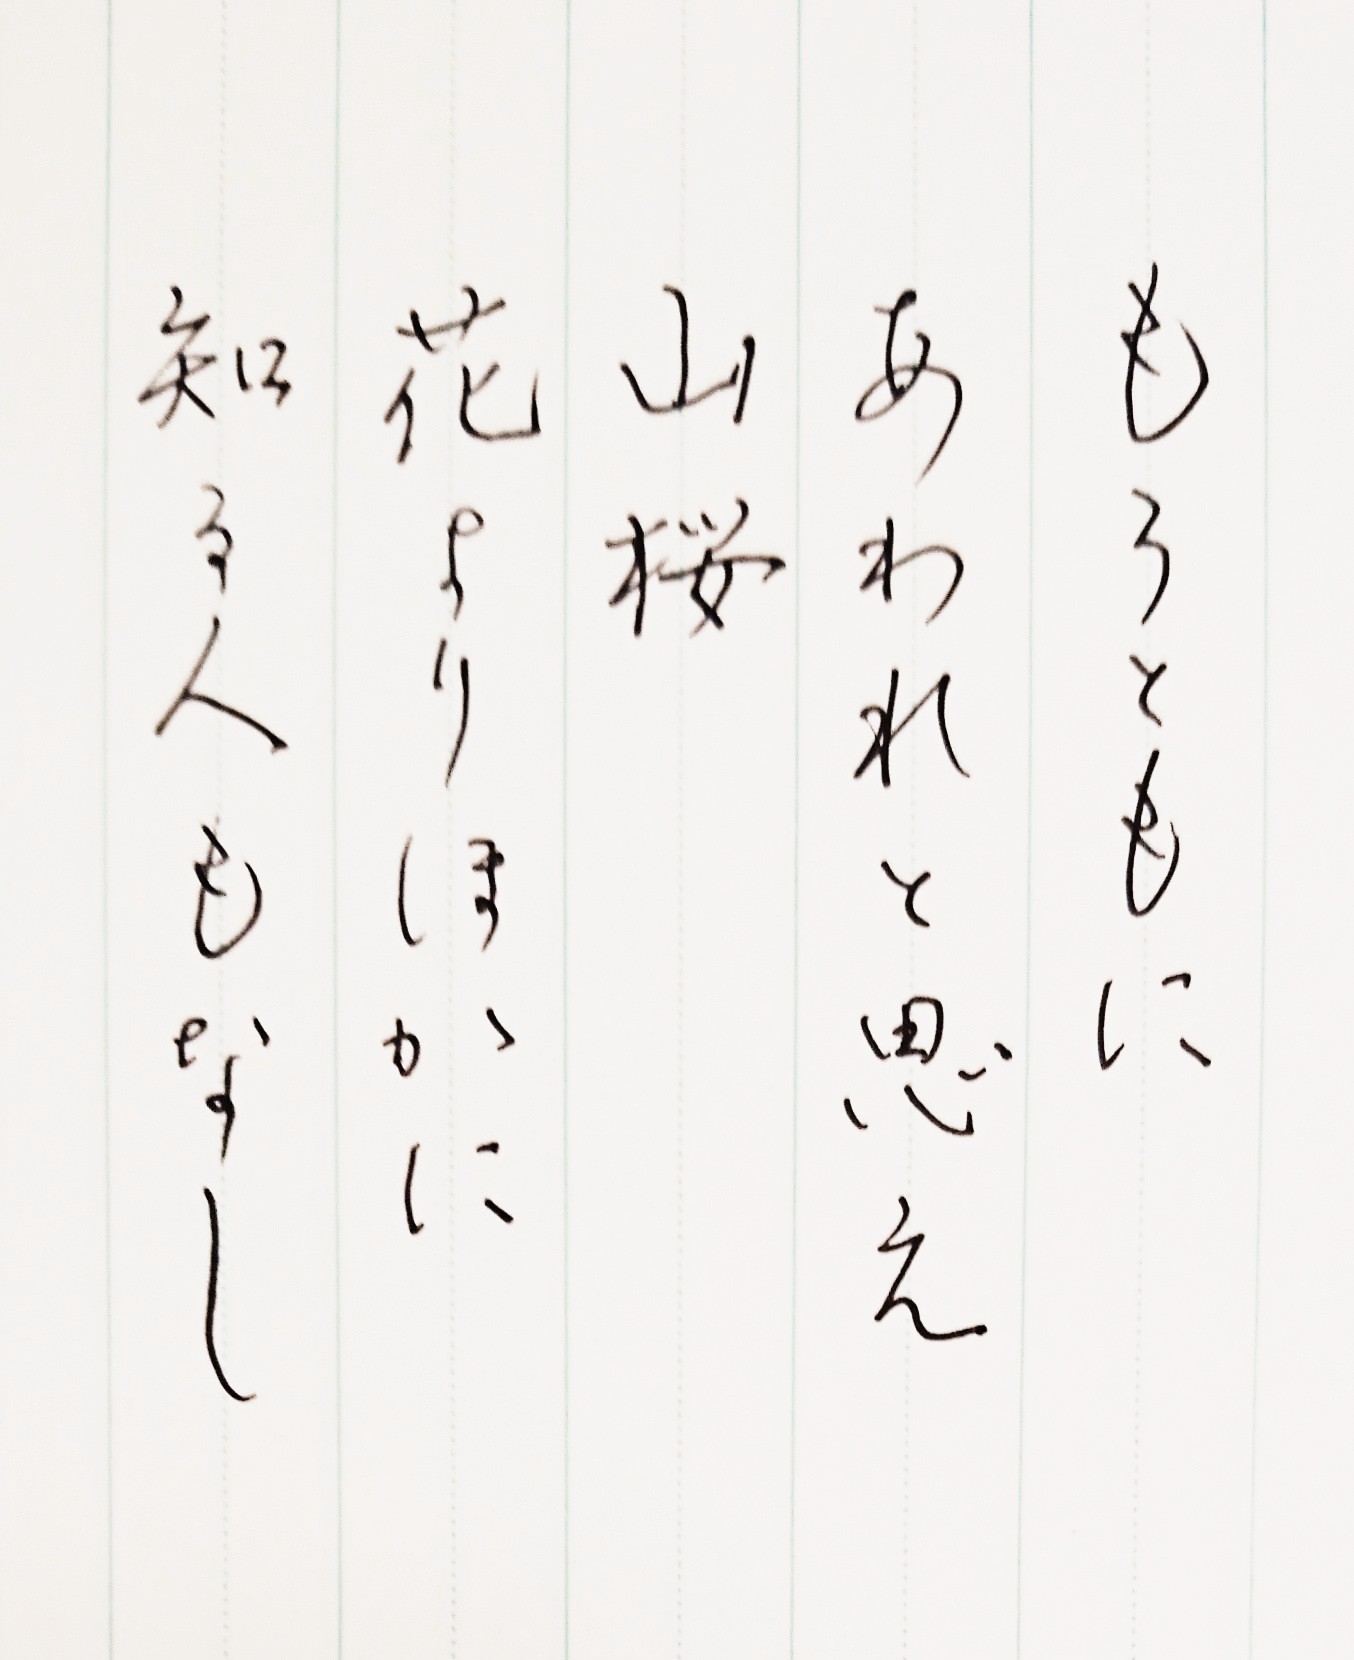 もろともに
あわれと思え
山桜
花よりほかに
知る人もなし